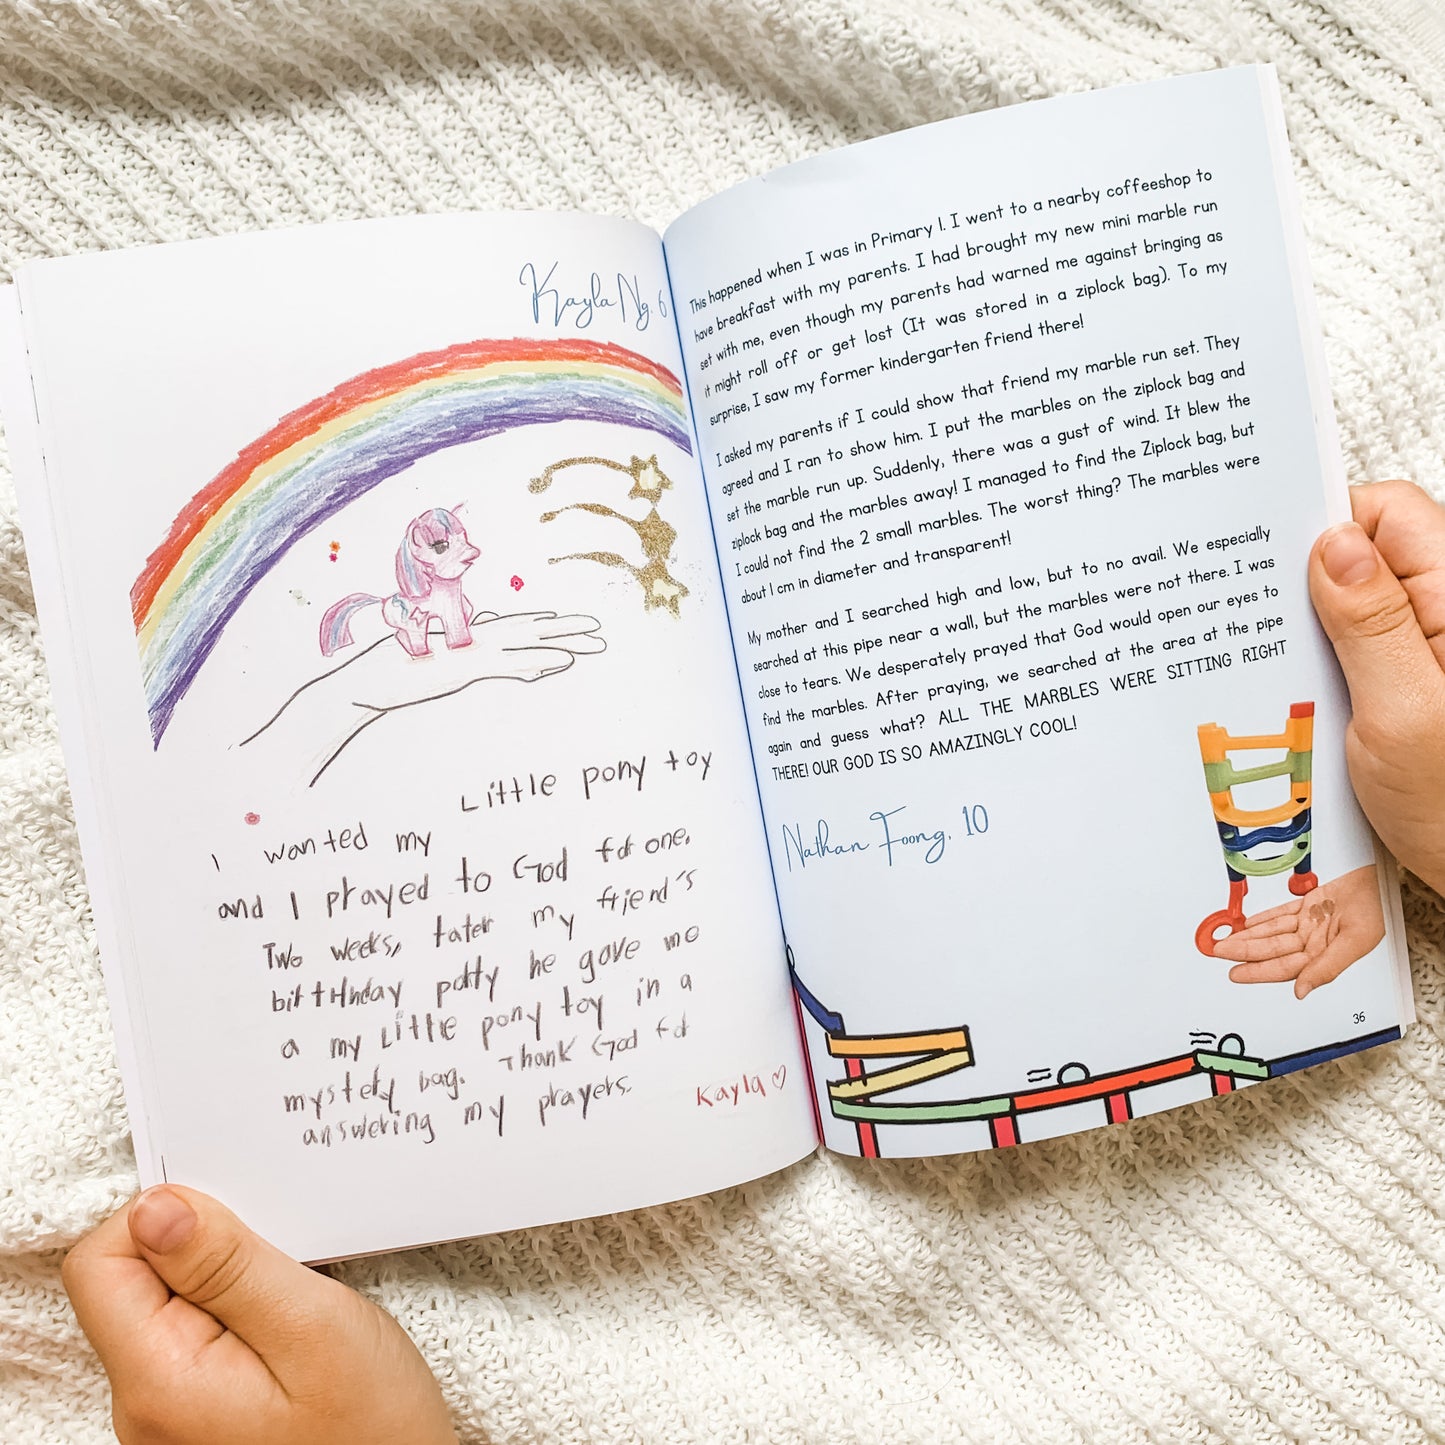 Kayla Ng, 6
Little pony toy
I wanted my
and I prayed to God for one.
Two weeks, later my friend's
birthday party he gave me
a my Little pony toy in a
mystery bag. Thank God for
answering my prayers.
Kayla
This happened when I was in Primary 1. I went to a nearby coffeeshop to
have breakfast with my parents. I had brought my new mini marble run
set with me, even though my parents had warned me against bringing as
it might roll off or get lost (It was stored in a ziplock bag). To my
surprise, I saw my former kindergarten friend there!
I asked my parents if I could show that friend my marble run set. They
agreed and I ran to show him. I put the marbles on the ziplock bag and
set the marble run up. Suddenly, there was a gust of wind. It blew the
ziplock bag and the marbles away! I managed to find the Ziplock bag, but
I could not find the 2 small marbles. The worst thing? The marbles were
about 1 cm in diameter and transparent!
My mother and I searched high and low, but to no avail. We especially
searched at this pipe near a wall, but the marbles were not there. I was
close to tears. We desperately prayed that God would open our eyes to
find the marbles. After praying, we searched at the area at the pipe
again and guess what? ALL THE MARBLES WERE SITTING RIGHT
THERE! OUR GOD IS SO AMAZINGLY COOL!
Nathan Foong, 10
36